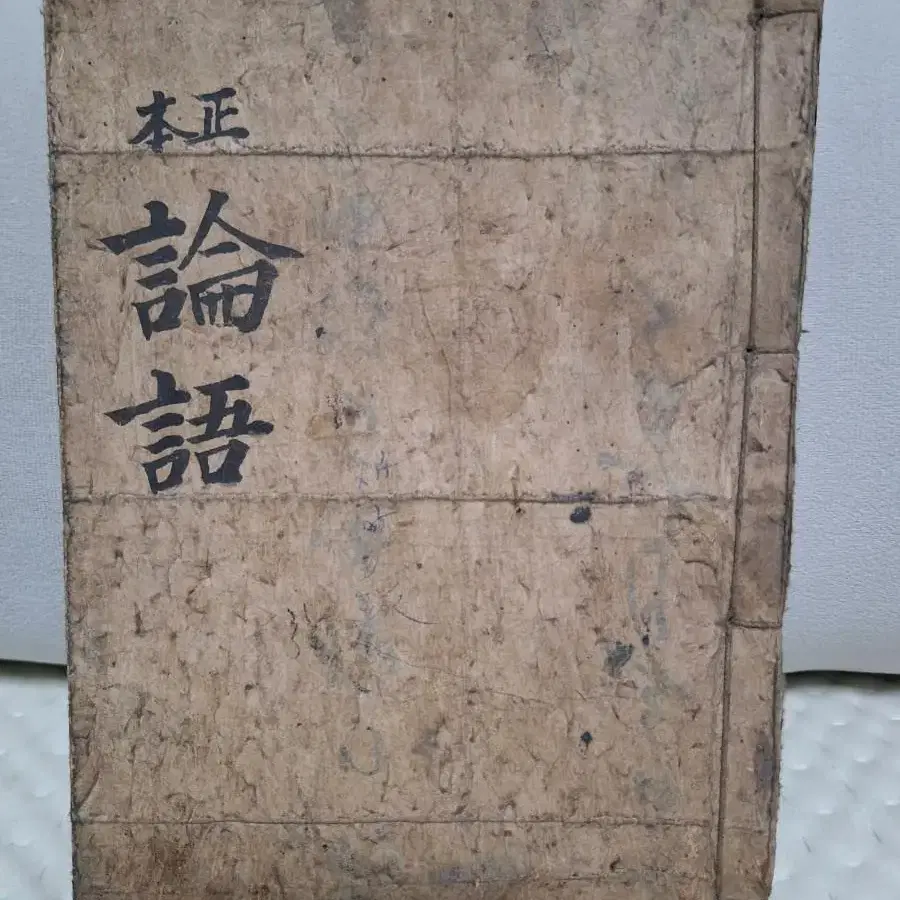 正本
論語